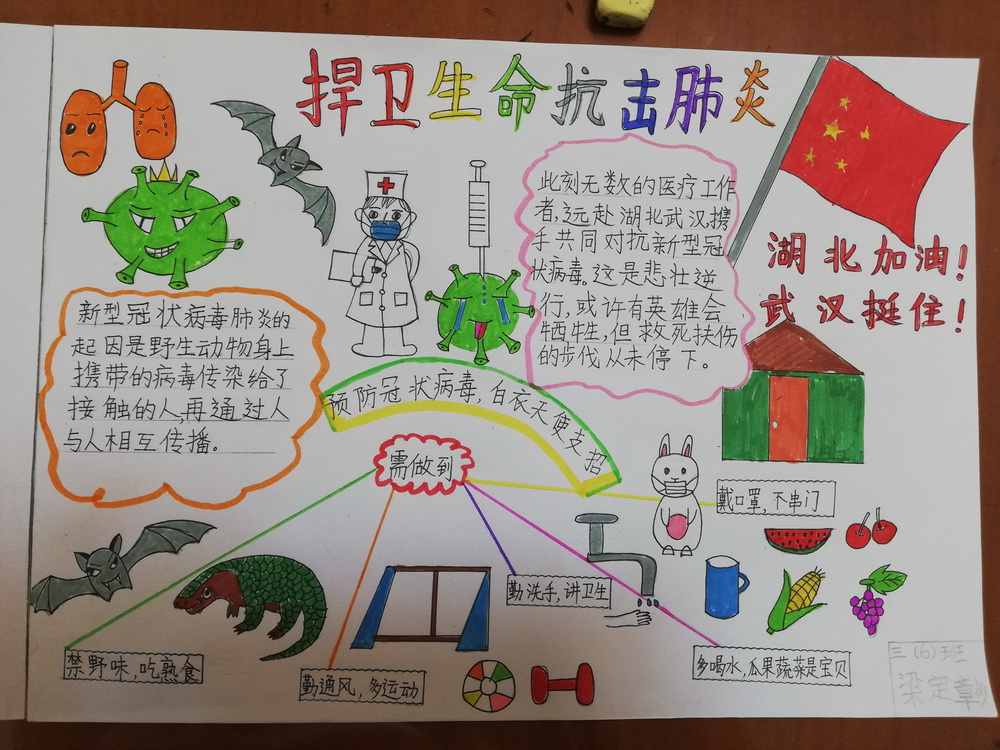 捍卫生命抗击肺炎
此刻无数的医疗工作
者,远赴湖北武汉携
手共同对抗新型冠
状病毒。这是悲壮逆
行,或许有英雄会
牺牲,但救死扶伤
的步伐从未停下。
湖北加油!
武汉挺住!
新型冠状病毒肺炎的
起因是野生动物身上
携带的病毒传染给了
接触的人,再通过人
与人相互传播。
预防冠状病毒,白衣天使支招
需做到
戴口罩,不串门
勤洗手,讲卫生
禁野味,吃熟食
勤通风,多运动
多喝水,瓜果蔬菜是宝贝
三(6)班
梁定